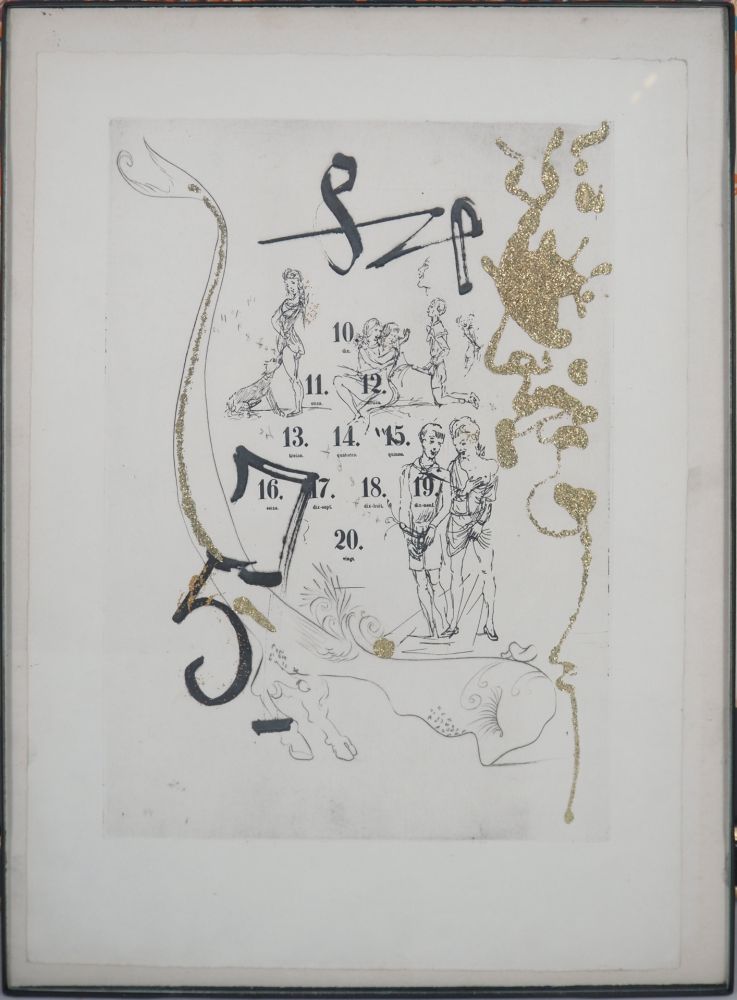 10.
dix.
11. 12.
onze.
13. 14. 15.
treize. quatorze. quinze.
16. 17. 18. 19.
seize. dix-sept. dix-huit. dix-neuf.
20.
vingt.
7
5